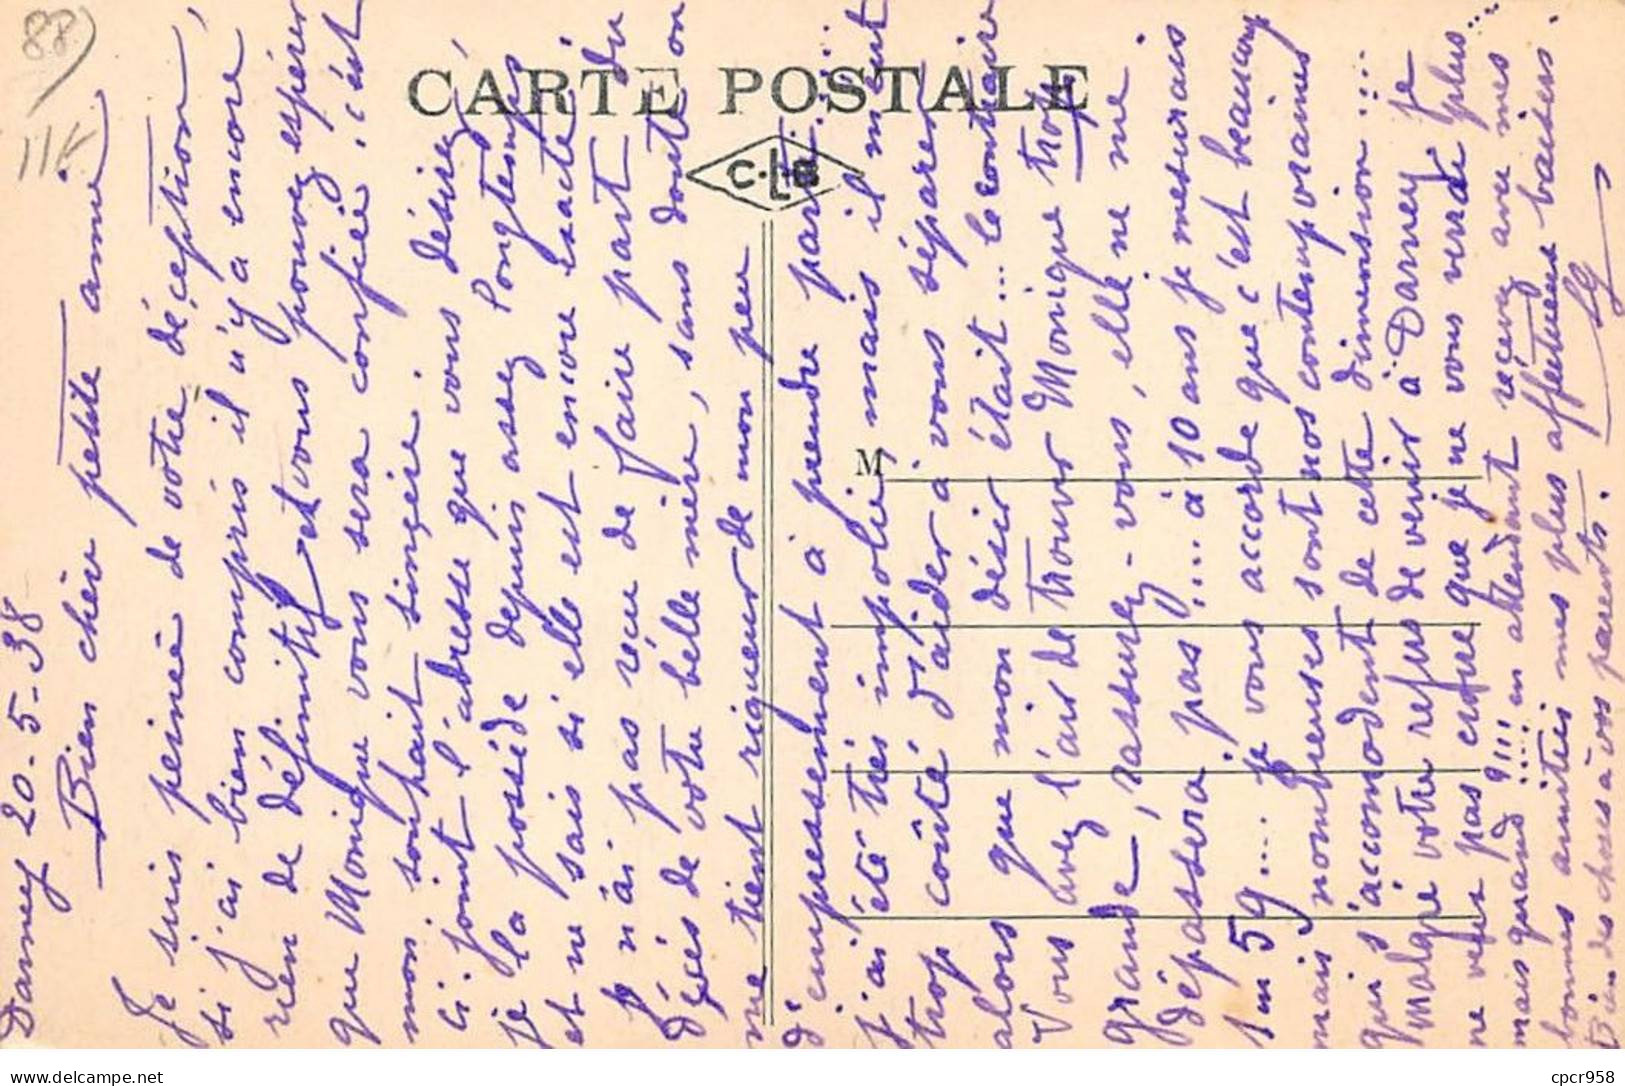 88
CARTE POSTALE
C.L.B
M
Darney 20-5-38
Bien chère petite amie
Je suis peinée de votre déception,
si j'ai bien compris il n'y a encore
rien de définitif et vous pouvez espérer
que Monique vous sera confiée. c'est
mon souhait sincère.
Ci-joint l'adresse que vous désirez,
je la possède depuis assez longtemps
et ne sais si elle est encore exacte.
Je n'ai pas reçu de faire part du
décès de votre belle mère, sans doute on
me tient rigueur de mon peu
d'empressement à prendre parti...
j'ai été très impolie, mais il m'eut
trop coûté d'aider à vous séparer
alors que mon désir était... le contraire
Vous avez l'air de trouver Monique trop
grande, rassurez-vous, elle ne me
dépassera pas!... à 10 ans je mesurais
1m59... je vous accorde que c'est beaucoup
mais nombreuses sont nos contemporaines
qui s'accomodent de cette dimension....
Malgré votre refus de venir à Darney je
ne veux pas croire que je ne vous verrai plus...
mais quand?!!! en attendant recevez avec mes
bonnes amitiés mes plus affectueux baisers.
bien des choses à vos parents.
cpcr958
delcampe.net